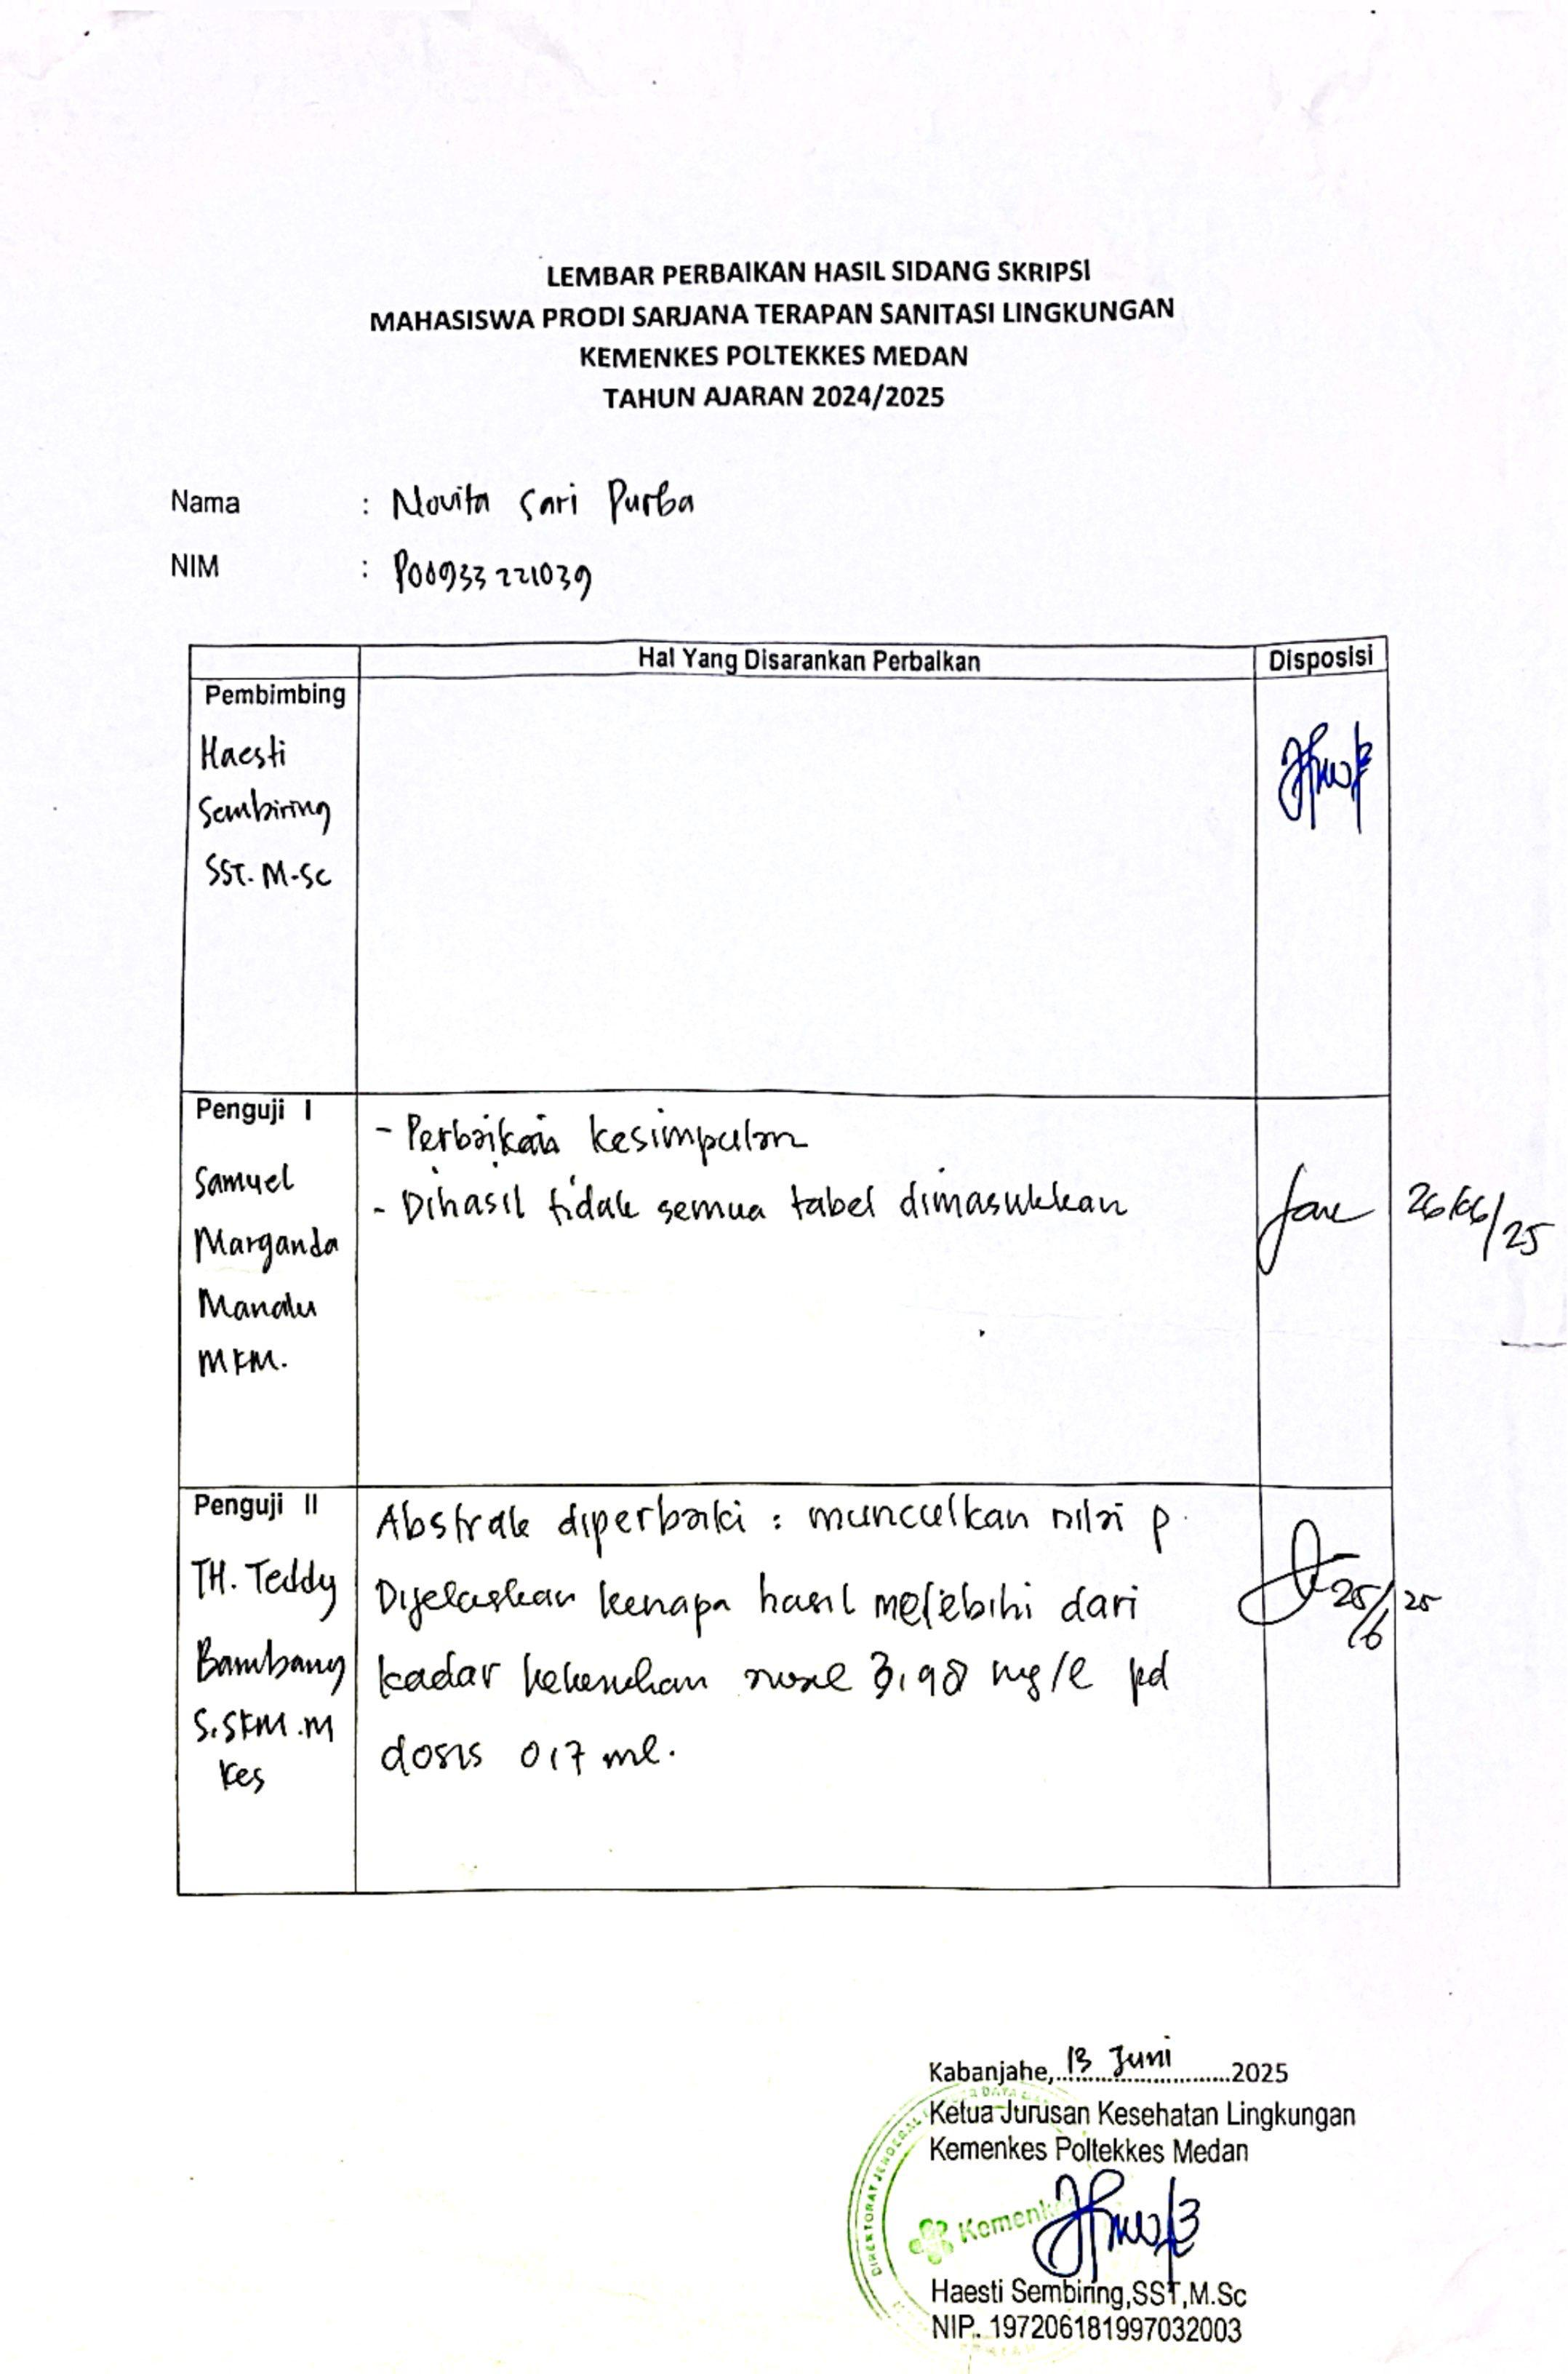 LEMBAR PERBAIKAN HASIL SIDANG SKRIPSI
MAHASISWA PRODI SARJANA TERAPAN SANITASI LINGKUNGAN
KEMENKES POLTEKKES MEDAN
TAHUN AJARAN 2024/2025
Nama : Novita Sari Purba
NIM : P00933221039
Hal Yang Disarankan Perbaikan Disposisi
Pembimbing
Haesti
Sembiring
SST. M.Sc
Penguji I
- Perbaikan kesimpulan
Samuel
- Dihasil tidak semua tabel dimasukkan
26/06/25
Marganda
Manalu
MKM.
Penguji II
Abstrak diperbaiki : munculkan nilai p.
TH. Teddy
Dijelaskan kenapa hasil melebihi dari
25/6 25
Bambang
kadar kekeruhan 3,98 mg/l pd
S.SKM.M
Kes
dosis 0,7 ml.
Kabanjahe, 13 Juni 2025
Ketua Jurusan Kesehatan Lingkungan
Kemenkes Poltekkes Medan
DIREKTORAT JENDERAL
Kemenk
Haesti Sembiring,SST,M.Sc
NIP. 197206181997032003